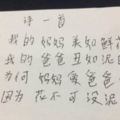 诗一首
我的妈妈美如鲜花
我的爸爸丑如泥巴
为何妈妈爱爸爸
因为花不可没泥